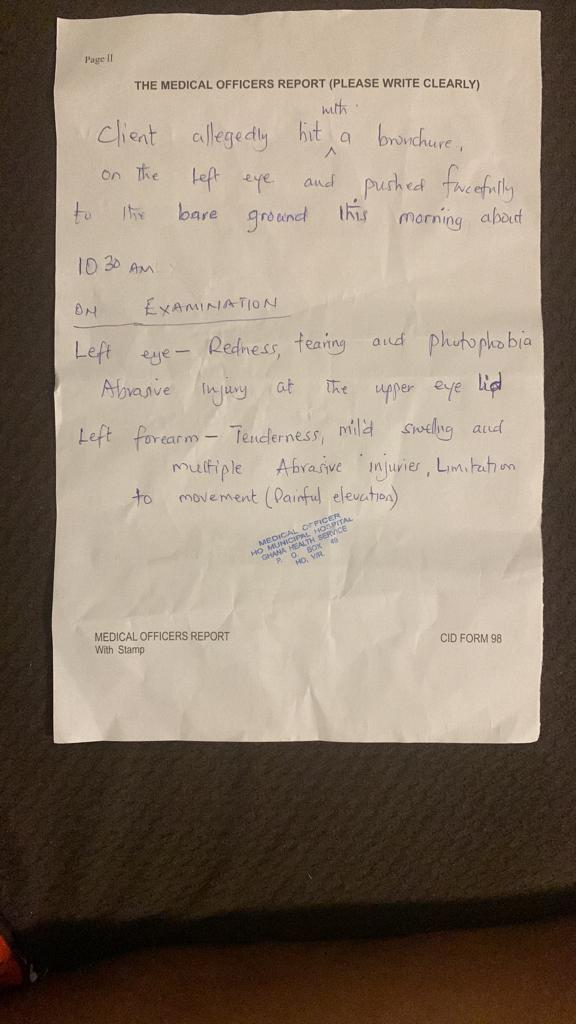 Page II
THE MEDICAL OFFICERS REPORT (PLEASE WRITE CLEARLY)
with
Client allegedly hit ^ a bronchure,
on the Left eye and pushed forcefully
to the bare ground this morning about
10 30 AM
ON EXAMINATION
Left eye – Redness, tearing and photophobia
Abrasive injury at the upper eye lid
Left forearm – Tenderness, mild swelling and
multiple Abrasive injuries, Limitation
to movement (Painful elevation)
MEDICAL OFFICER
HO MUNICIPAL HOSPITAL
GHANA HEALTH SERVICE
P. O. BOX 49
HO, V/R.
MEDICAL OFFICERS REPORT
With Stamp
CID FORM 98